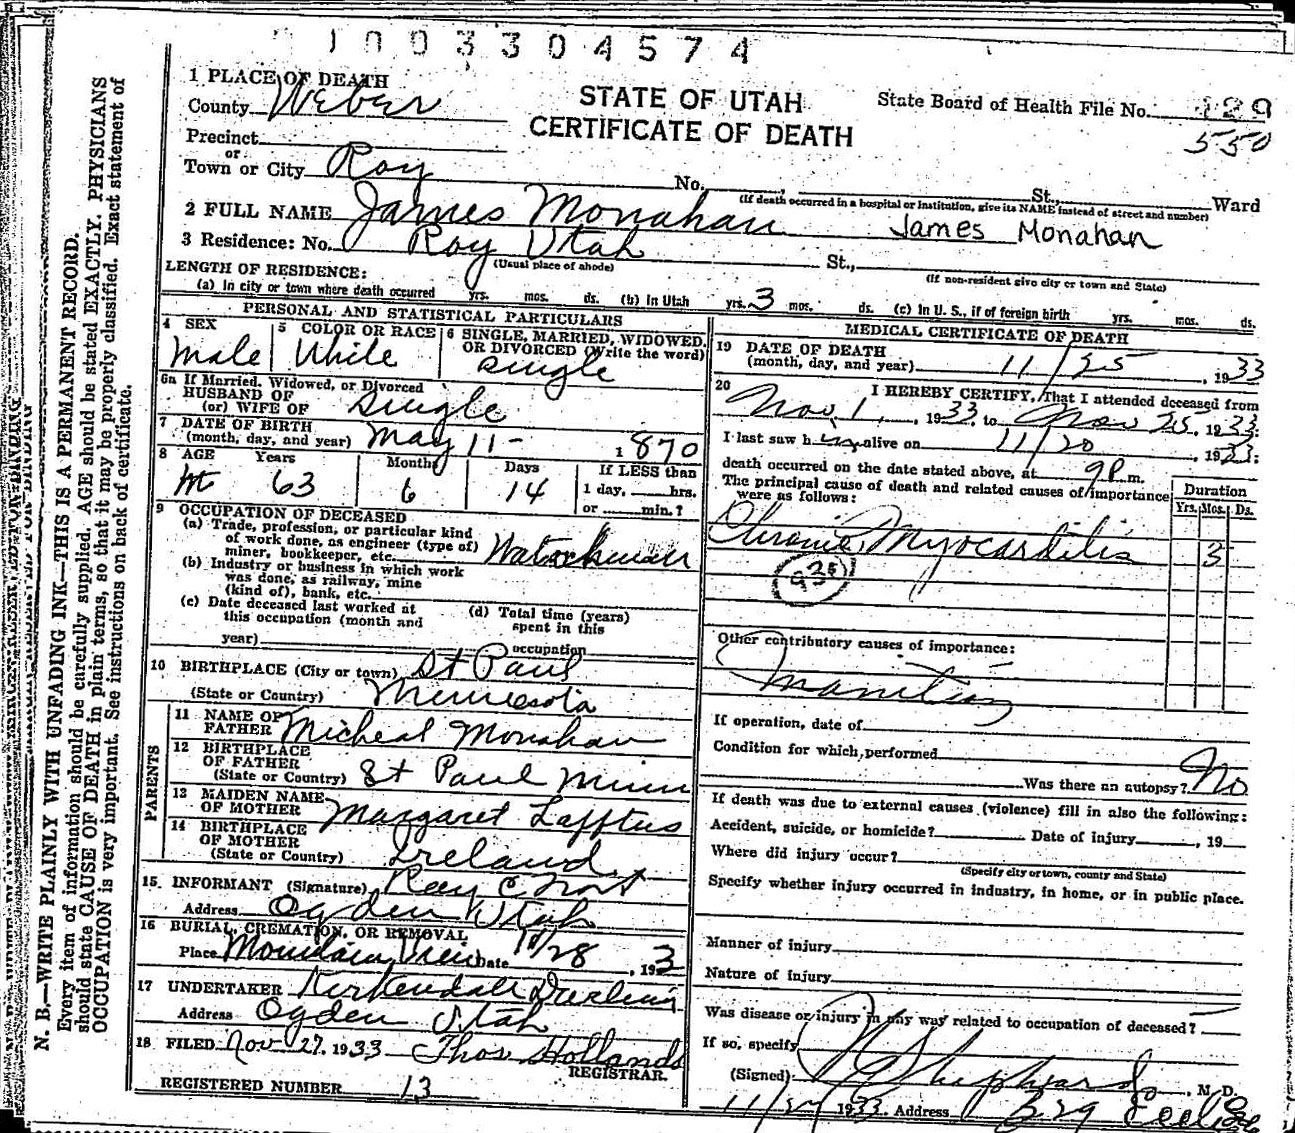 1003304574
1 PLACE OF DEATH
County Weber
STATE OF UTAH
CERTIFICATE OF DEATH
State Board of Health File No. 129
550
Precinct
or
Town or City Roy
No. , St., Ward
(If death occurred in a hospital or institution, give its NAME instead of street and number)
2 FULL NAME James Monahan James Monahan
3 Residence: No. Roy Utah St.,
(Usual place of abode) (If non-resident give city or town and State)
LENGTH OF RESIDENCE:
(a) In city or town where death occurred yrs. mos. ds. (b) In Utah yrs. 3 mos. ds. (c) In U. S., if of foreign birth yrs. mos. ds.
PERSONAL AND STATISTICAL PARTICULARS
4 SEX
Male
5 COLOR OR RACE
White
6 SINGLE, MARRIED, WIDOWED, OR DIVORCED (Write the word)
Single
6a If Married, Widowed, or Divorced
HUSBAND OF
(or) WIFE OF Single
7 DATE OF BIRTH
(month, day, and year) May 11 - 1870
8 AGE Years Months Days If LESS than
63 6 14 1 day, hrs.
or min.?
9 OCCUPATION OF DECEASED
(a) Trade, profession, or particular kind
of work done, as engineer (type of)
miner, bookkeeper, etc. Watchman
(b) Industry or business in which work
was done, as railway, mine
(kind of), bank, etc.
(c) Date deceased last worked at
this occupation (month and
year)
(d) Total time (years)
spent in this
occupation
10 BIRTHPLACE (City or town) St Paul
(State or Country) Minnesota
PARENTS
11 NAME OF
FATHER Micheal Monahan
12 BIRTHPLACE
OF FATHER
(State or Country) St Paul Minn
13 MAIDEN NAME
OF MOTHER Margaret Lafftus
14 BIRTHPLACE
OF MOTHER
(State or Country) Ireland
15. INFORMANT (Signature) Ray
Address Ogden Utah
16 BURIAL, CREMATION, OR REMOVAL
Place Mountain View Date 11/28, 193
17 UNDERTAKER Kirkendall Darling
Address Ogden Utah
18 FILED Nov 27, 1933 Thos Hollands
REGISTRAR.
REGISTERED NUMBER 13
MEDICAL CERTIFICATE OF DEATH
19 DATE OF DEATH
(month, day, and year) 11/25, 1933
20 I HEREBY CERTIFY, That I attended deceased from
Nov 1, 1933, to Nov 25, 1933.
I last saw him alive on 11/20, 1933:
death occurred on the date stated above, at 9P m.
The principal cause of death and related causes of importance
were as follows:
Duration
Yrs. Mos. Ds.
Chronic Myocarditis 3
Other contributory causes of importance:
If operation, date of
Condition for which performed
Was there an autopsy? No
If death was due to external causes (violence) fill in also the following:
Accident, suicide, or homicide? Date of injury , 19
Where did injury occur?
(Specify city or town, county and State)
Specify whether injury occurred in industry, in home, or in public place.
Manner of injury
Nature of injury
Was disease or injury in any way related to occupation of deceased?
If so, specify
(Signed) M. D.
11/27 1933. Address
N. B.—WRITE PLAINLY WITH UNFADING INK—THIS IS A PERMANENT RECORD.
Every item of information should be carefully supplied. AGE should be stated EXACTLY. PHYSICIANS
should state CAUSE OF DEATH in plain terms, so that it may be properly classified. Exact statement of
OCCUPATION is very important. See instructions on back of certificate.